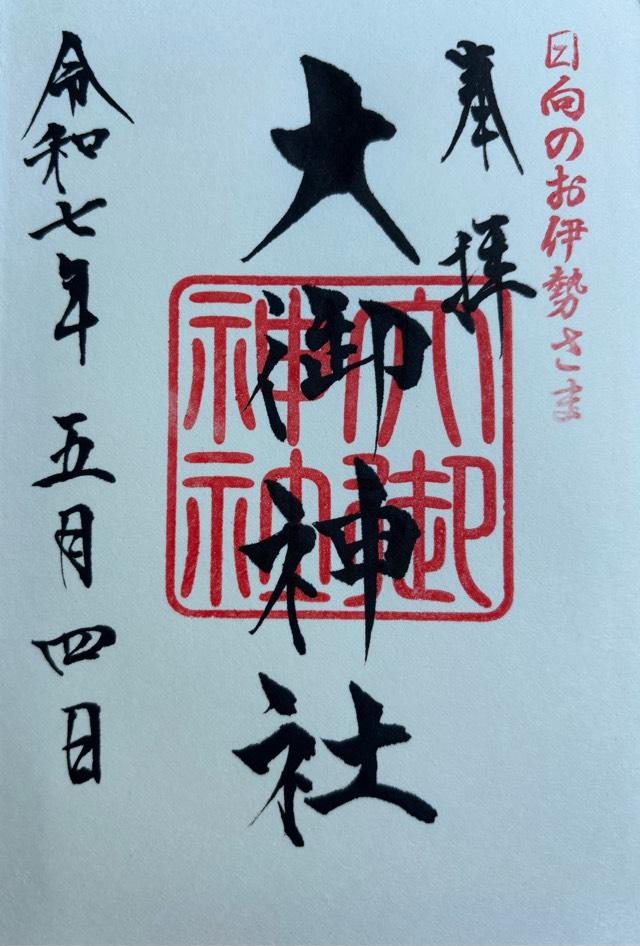 日向のお伊勢さま
奉拝
大御神社
大御神社
令和七年 五月四日